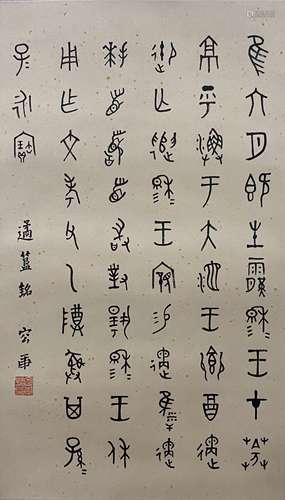 隹六月既生霸穆王才𦱤
京乎漁于大池王鄉酉遹
御亡遣穆王親易遹遹
拜首稽首敢對揚穆王休
用乍文考父乙尊彝其孫
子永寶 遹簋銘 容庚